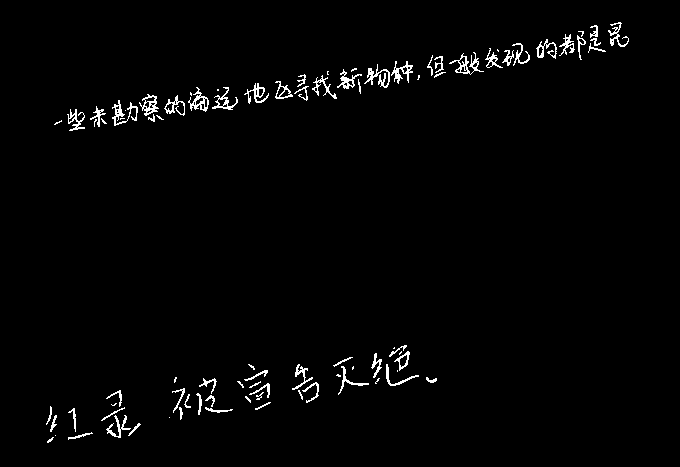 一些未勘察的偏远地区寻找新物种,但一般发现的都是昆
红录 被宣告灭绝。